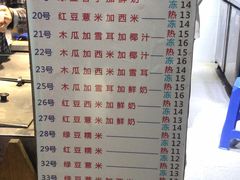 冻 14
20号 红豆薏米加西米 热 13
冻 14
21号 木瓜加雪耳加椰汁 热 15
冻 16
22号 木瓜加西米加椰汁 热 15
冻 16
23号 木瓜加西米加雪耳 热 13
冻 14
25号 木瓜加雪耳加鲜奶 热 15
冻 16
26号 红豆西米加鲜奶 热 13
冻 14
27号 红豆薏米加鲜奶 热 13
冻 14
28号 绿豆糯米 热 11
冻 12
29号 红豆糯米 热 11
冻 12
32号 绿豆薏米 热 11
冻 12
33号